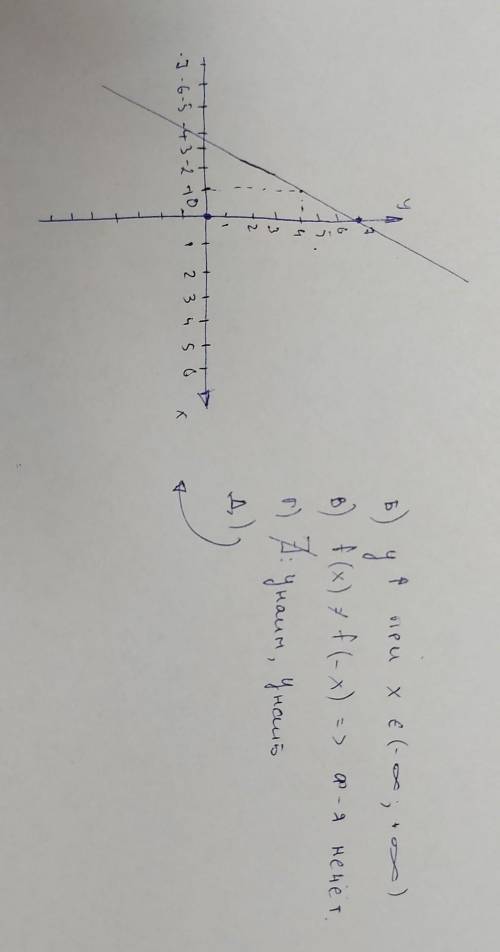 y
7
6
5
4
3
2
1
-7 -6 -5 -4 -3 -2 -1 0 1 2 3 4 5 6
x
Б) y ↑ при x ∈ (-∞; +∞)
В) f(x) ≠ f(-x) => ф-я нечёт.
Г) ∄: yнаим, yнаиб
Д)